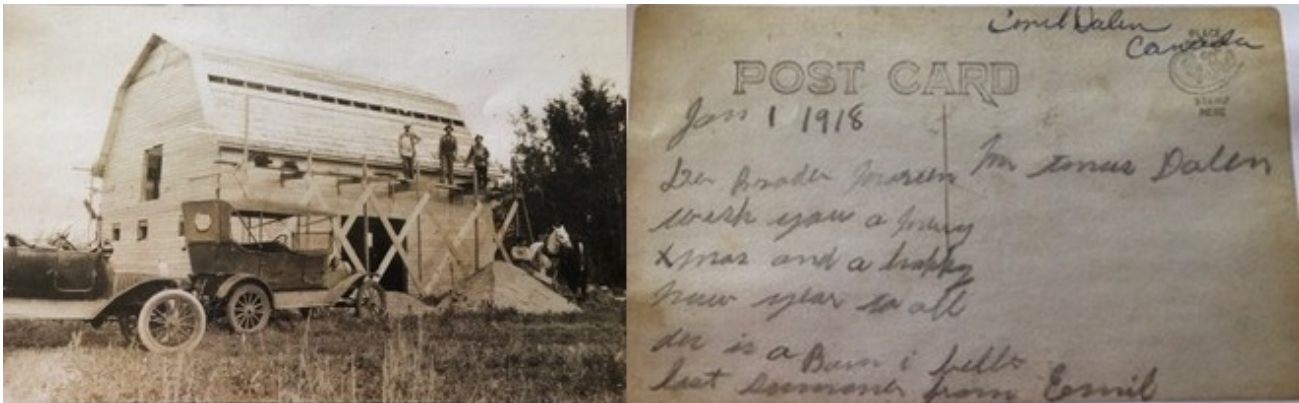 Emil Dalen
Canada
PLACE
STAMP
HERE
POST CARD
Jan 1 1918
Mr Dalen
Der Broder
wish you a mery
Xmas and a happy
new year to all
der is a Barn i bellt
last sommer from Eemil